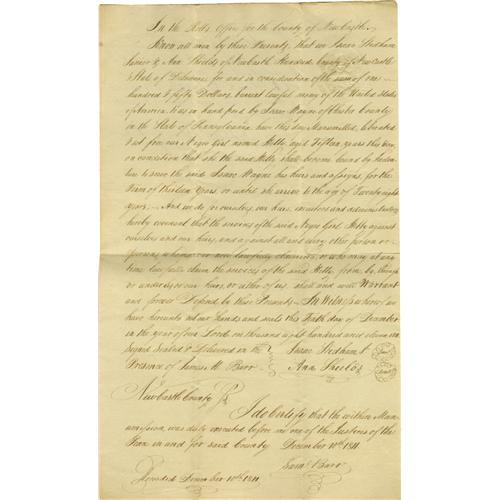 In the Rolls Office for the County of Newcastle
Know all men by these Presents, that we Isaac Stedham
Junior & Ann Shields of Newcastle Hundred County of Newcastle
State of Delaware for and in consideration of the sum of one
hundred & fifty Dollars, Current lawful money of the United States
of America, to us in hand paid by Isaac Wayne of Chester County
in the State of Pennsylvania have this day Manumitted, liberated
& set free our Negro Girl named Hetty aged Fifteen years this
on condition that she the said Hetty shall become bound by Inden-
ture to serve the said Isaac Wayne his heirs and assigns, for the
Term of Thirteen Years, or until she arrive to the age of Twenty eight
years,— And we do by ourselves, our heirs, executors and administrators
hereby covenant that the services of the said Negro Girl Hetty against
ourselves and our heirs, and against all and every other person or
persons whomsoever now lawfully claiming, or who may at any
time lawfully claim the services of the said Hetty from, by, through
or under us or our heirs, or either of us, shall and will Warrant
and forever Defend by these Presents— In Witness whereof
we have hereunto set our hands and seals this Tenth day of December
in the year of our Lord one thousand eight hundred and eleven 1811
Signed Sealed & Delivered in the Isaac Stedham Jr
Presence of James M. Barr Ann Shields
Newcastle County
I do Certify that the within Man-
umission, was duly executed before me one of the Justices of the
Peace in and for said County December 10th 1811
Barr
Recorded December 10th 1811